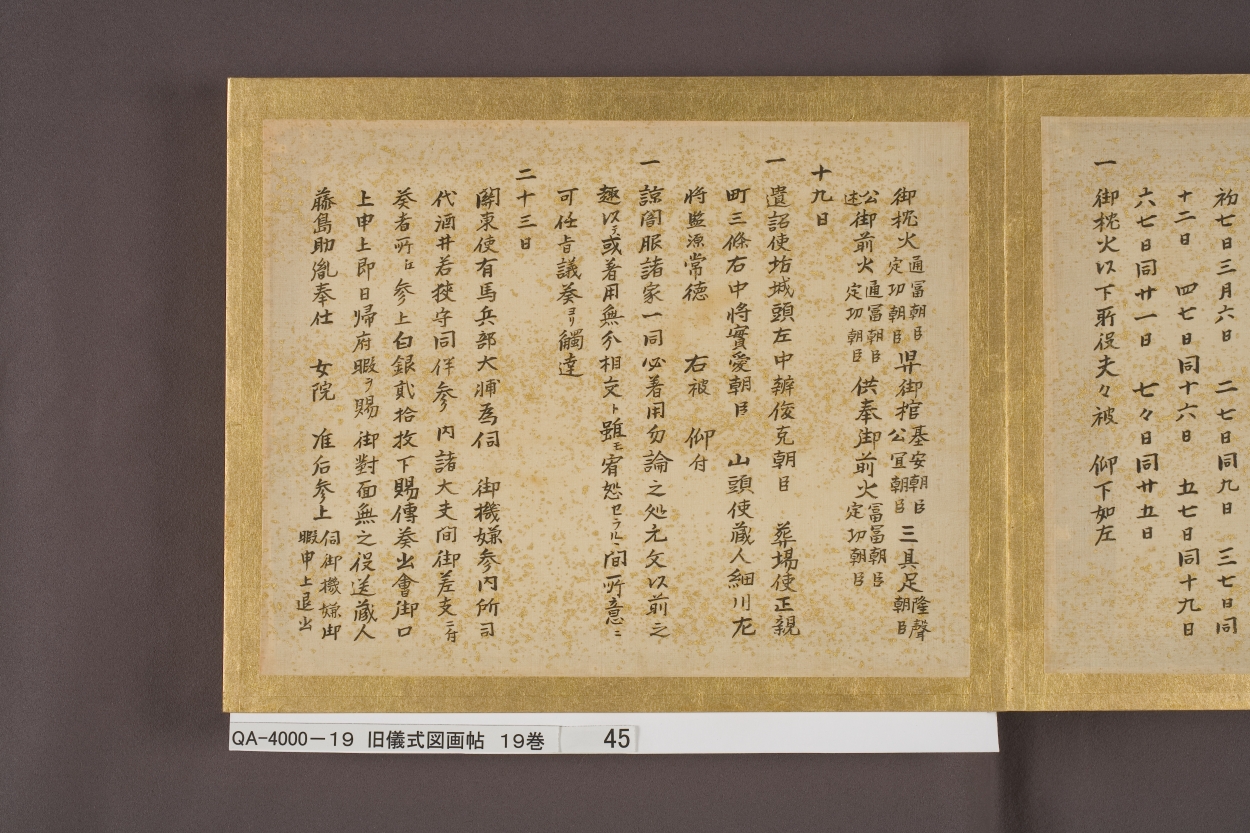 初七日三月六日　二七日同九日　三七日同
十二日　四七日同十六日　五七日同十九日
六七日同廿一日　七々日同廿五日
一　御枕火以下所役夫々被　仰下如左
御枕火通冨朝臣定功朝臣　舁御棺基安朝臣公冝朝臣　三具足隆聲朝臣
公御前火通冨朝臣定功朝臣　供奉御前火冨朝臣定功朝臣
十九日
一　遺詔使坊城頭左中辨俊克朝臣　葬場使正親
町三條右中將實愛朝臣　山頭使蔵人細川左
將監源常德　右被　仰付
一　諒闇服諸家一同必着用勿論之処元文以前之
趣以テ或着用無分相交ト雖モ宥恕セラルヽ間所意ニ
可任旨議奏ヨリ觸達
二十三日
關東使有馬兵部大浦為伺　御機嫌参内所司
代酒井若狭守同伴参　内諸大夫間御差支ニ付
奏者所江参上白銀貳拾枚下賜傳奏出會御口
上申上即日帰府暇ヲ賜　御對面無之役送蔵人
藤島助胤奉仕　女院　准后参上伺御機嫌御暇申上退出
QA-4000－19　旧儀式図画帖　19巻　45